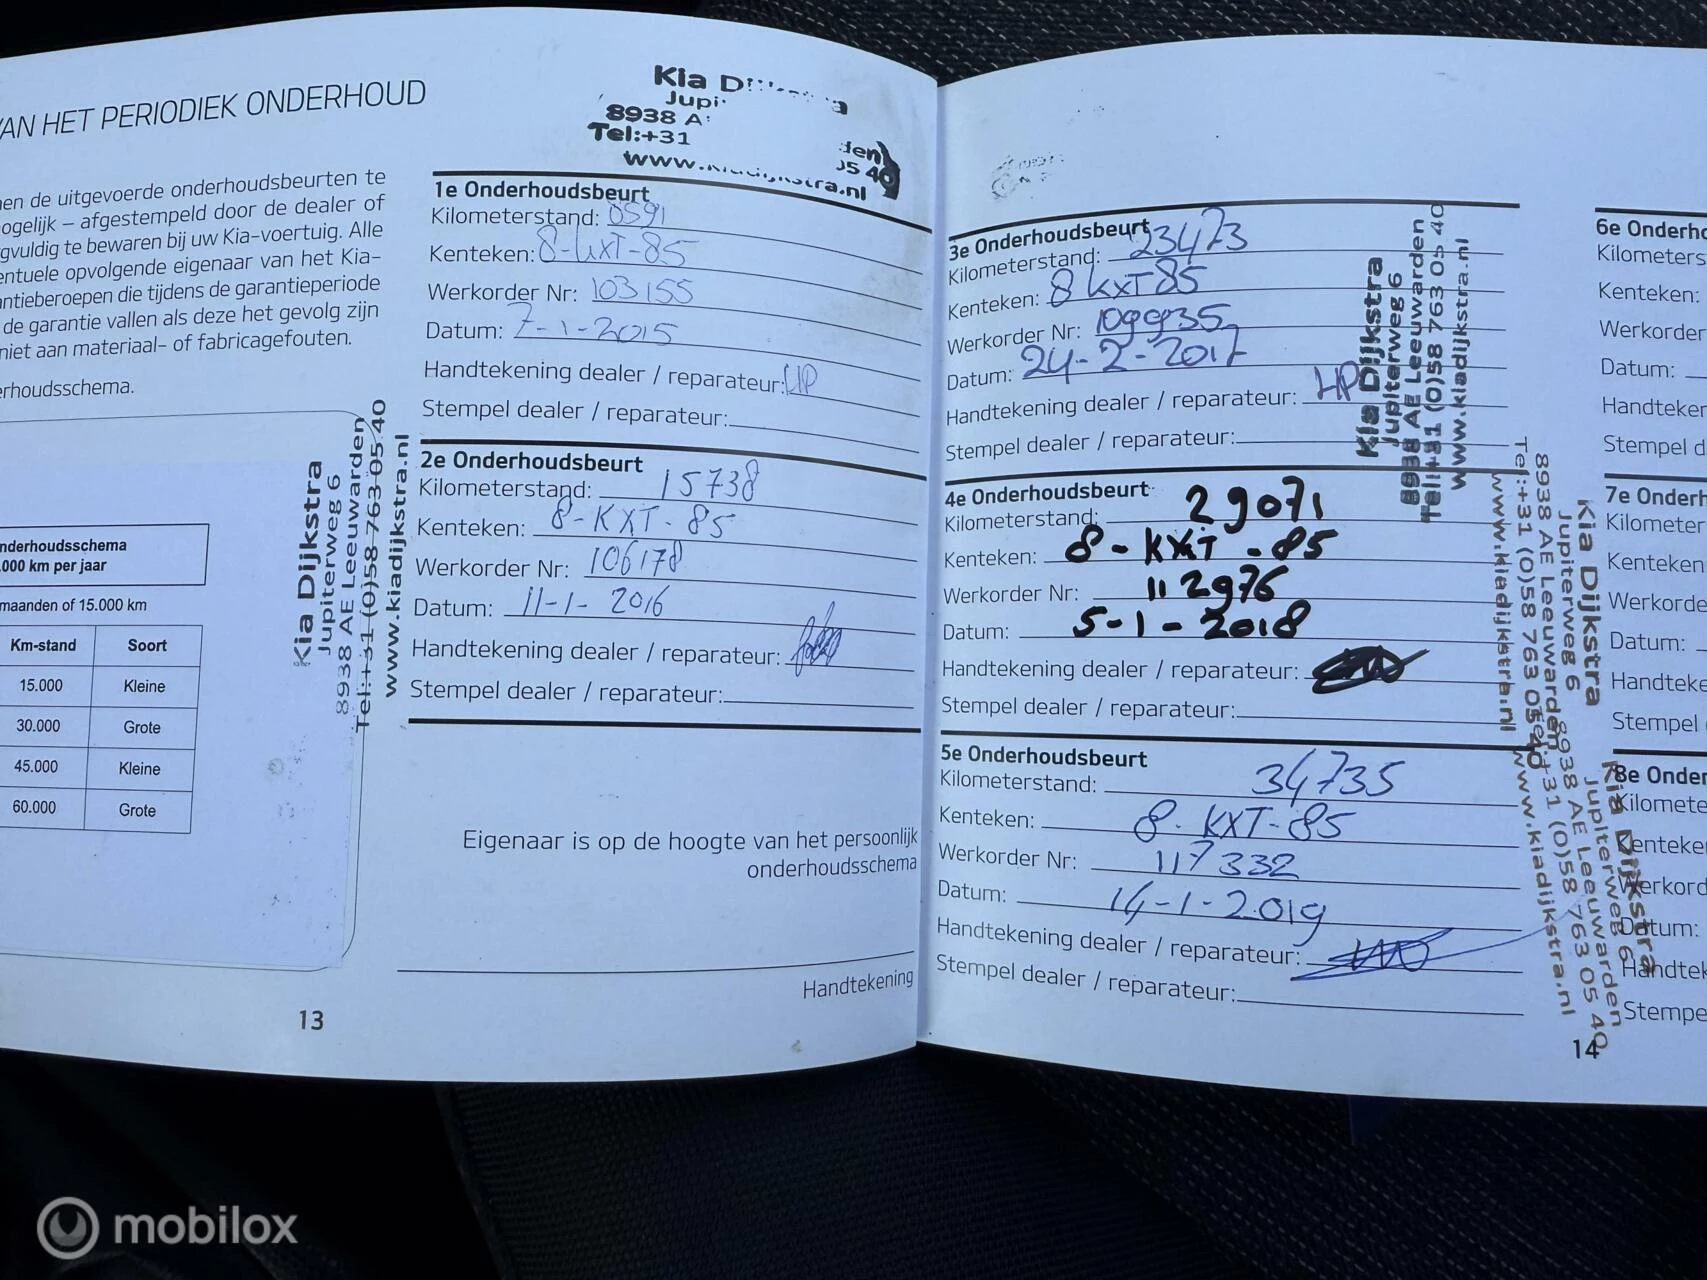 VAN HET PERIODIEK ONDERHOUD
nen de uitgevoerde onderhoudsbeurten te
mogelijk – afgestempeld door de dealer of
rgvuldig te bewaren bij uw Kia-voertuig. Alle
entuele opvolgende eigenaar van het Kia-
antieberoepen die tijdens de garantieperiode
de garantie vallen als deze het gevolg zijn
niet aan materiaal- of fabricagefouten.
erhoudsschema.
nderhoudsschema
.000 km per jaar
maanden of 15.000 km
Km-stand Soort
15.000 Kleine
30.000 Grote
45.000 Kleine
60.000 Grote
Kia Dijkstra
Jupiterweg 6
8938 AE Leeuwarden
Tel:+31 (0)58-763 05 40
www.kiadijkstra.nl
13
Kia D
Jupi
8938 A
Tel:+31
www.
1e Onderhoudsbeurt
Kilometerstand:
Kenteken: 8-KXT-85
Werkorder Nr: 103155
Datum: 7-1-2015
Handtekening dealer / reparateur: HP
Stempel dealer / reparateur:
2e Onderhoudsbeurt
Kilometerstand: 15738
Kenteken: 8-KXT-85
Werkorder Nr: 106178
Datum: 11-1-2016
Handtekening dealer / reparateur:
Stempel dealer / reparateur:
Eigenaar is op de hoogte van het persoonlijk
onderhoudsschema
Handtekening
3e Onderhoudsbeurt
Kilometerstand: 23473
Kenteken: 8 KXT 85
Werkorder Nr: 109935
Datum: 24-2-2017
Handtekening dealer / reparateur: HP
Stempel dealer / reparateur:
Kia Dijkstra
Jupiterweg 6
8938 AE Leeuwarden
Tel:+31 (0)58 763 05 40
www.kiadijkstra.nl
4e Onderhoudsbeurt
Kilometerstand: 29071
Kenteken: 8-KXT-85
Werkorder Nr: 112976
Datum: 5-1-2018
Handtekening dealer / reparateur:
Stempel dealer / reparateur:
Kia Dijkstra
Jupiterweg 6
8938 AE Leeuwarden
Tel:+31 (0)58 763 05 40
www.kiadijkstra.nl
5e Onderhoudsbeurt
Kilometerstand: 34735
Kenteken: 8-KXT-85
Werkorder Nr: 117332
Datum: 14-1-2019
Handtekening dealer / reparateur:
Stempel dealer / reparateur:
Kia Dijkstra
Jupiterweg 6
8938 AE Leeuwarden
Tel:+31 (0)58 763 05 40
www.kiadijkstra.nl
14
6e Onderho
Kilometers
Kenteken:
Werkorder
Datum:
Handteken
Stempel d
7e Onderh
Kilometer
Kenteken
Werkorde
Datum:
Handteke
Stempel
8e Onder
Kilomete
Kenteke
Werkord
Datum:
Handtek
Stempe
mobilox